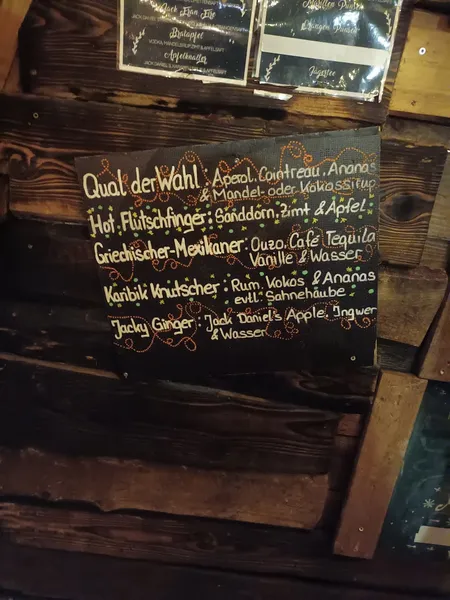 Jack Efun Eis
Bratapfel
Apfelknaller
Jägertee
Qual der Wahl : Aperol, Cointreau, Ananas
& Mandel- oder Kokossirup
Hot Flutschfinger : Sanddorn, Zimt & Apfel
Griechischer-Mexikaner : Ouzo, Café Tequila
Vanille & Wasser
Karibik Knutscher : Rum, Kokos & Ananas
evtl. Sahnehäube
Jacky Ginger : Jack Daniel's Apple, Ingwer
& Wasser